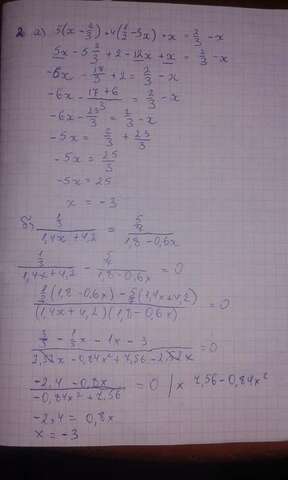 2. a) 5(x - 2/3) + 4(1/2 - 3x) + x = 2/3 - x
5x - 5 2/3 + 2 - 12x + x = 2/3 - x
-6x - 17/3 + 2 = 2/3 - x
-6x - (17+6)/3 = 2/3 - x
-6x - 23/3 = 2/3 - x
-5x = 2/3 + 23/3
-5x = 25/3
-5x = 25
x = -3
(1/3)/(1,4x+4,2) = (5/4)/(1,8-0,6x)
(1/3)/(1,4x+4,2) - (5/4)/(1,8-0,6x) = 0
(1,8-0,6x) (1,4x+4,2) / (1,4x+4,2)(1,8-0,6x) = 0
-1x - 3
-0,84x² + 7,56 = 0
(-2,4-0,8x)/(-0,84x²+7,56) = 0 | x 7,56-0,84x²
-2,4 = 0,8x
x = -3